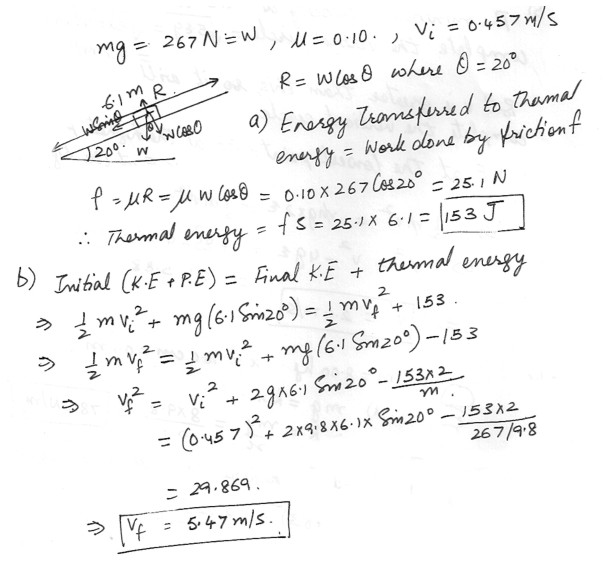 mg = 267 N = W , μ = 0.10. , Vi = 0.457 m/s
R = W Cos θ where θ = 20°
6.1 m R.
W Sin θ
W Cos θ
20°. W
a) Energy Transferred to Thermal
energy = Work done by friction f
f = μR = μ W Cos θ = 0.10 × 267 Cos 20° = 25.1 N
∴ Thermal energy = f S = 25.1 × 6.1 = 153 J
b) Initial (K.E + P.E) = Final K.E + thermal energy
⇒ 1/2 m vi² + mg (6.1 Sin 20°) = 1/2 m vf² + 153.
⇒ 1/2 m vf² = 1/2 m vi² + mg (6.1 Sin 20°) - 153
⇒ vf² = vi² + 2g × 6.1 Sin 20° - 153×2/m.
= (0.457)² + 2×9.8×6.1× Sin 20° - 153×2/267/9.8
= 29.869.
⇒ Vf = 5.47 m/s.